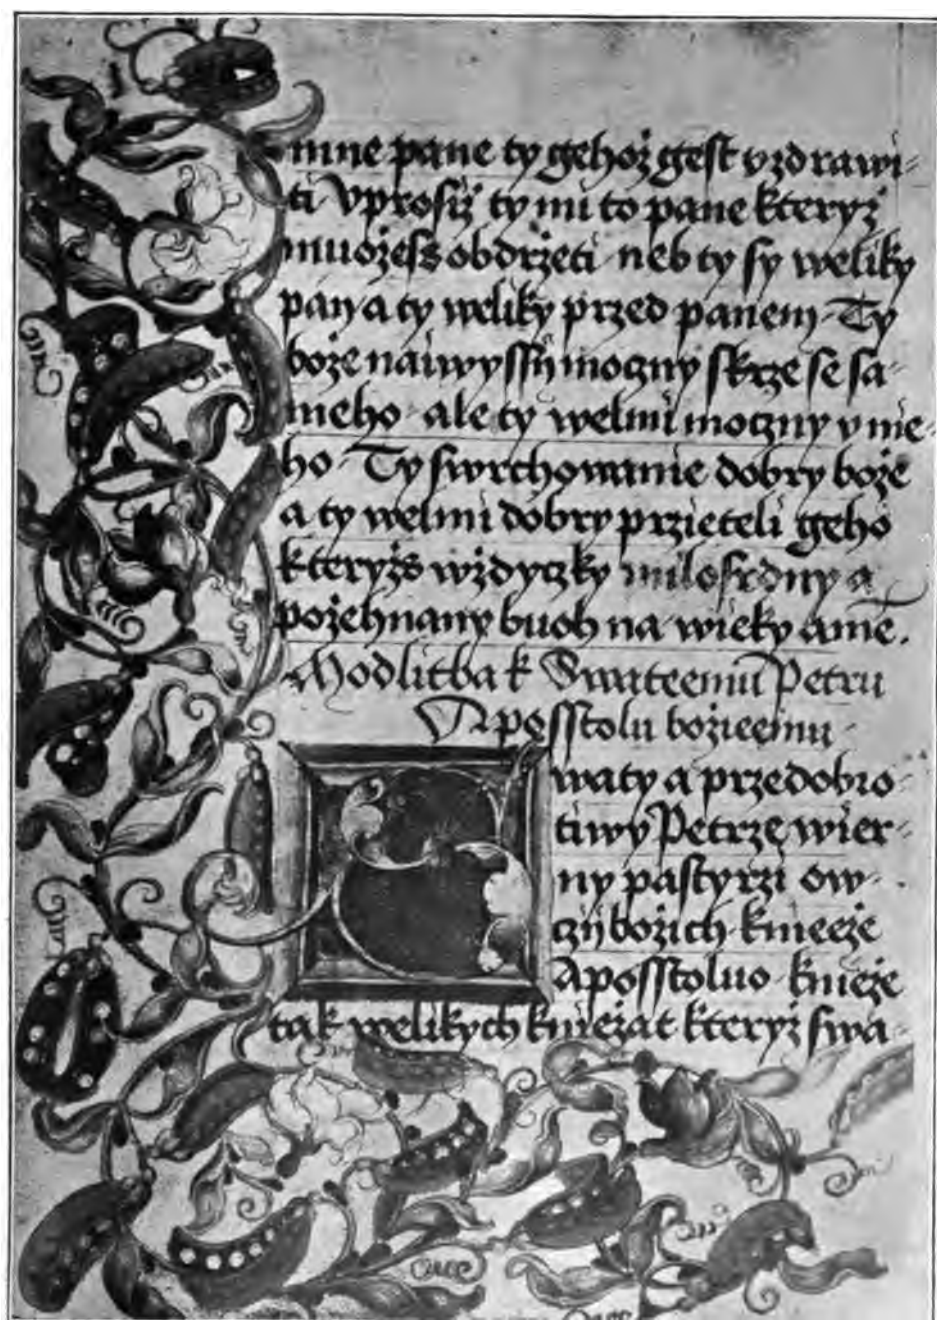 mne pane ty gehož gest vzdrawi-
ti Vprosiž ty mi to pane kteryž
muožess obdržeti neb ty sy weliky
pan a ty weliky przed panem Ty
bože naiwyssỳ moczny skrze se sa-
meho ale ty welmi moczny v nie-
ho Ty swrchowanie dobry bože
a ty welmi dobry przieteli geho
kteryžs wždyczky milosrdny a
požehnany buoh na wieky ame̅.
Modlitba k Swateemu Petru
Aposstolu božieemu
Swaty a przedobro-
tiwy Petrze wier-
ny pastyrzi ow-
czij božich knieeže
Aposstoluo knieže
tak welikych kniežat kteryž swa-